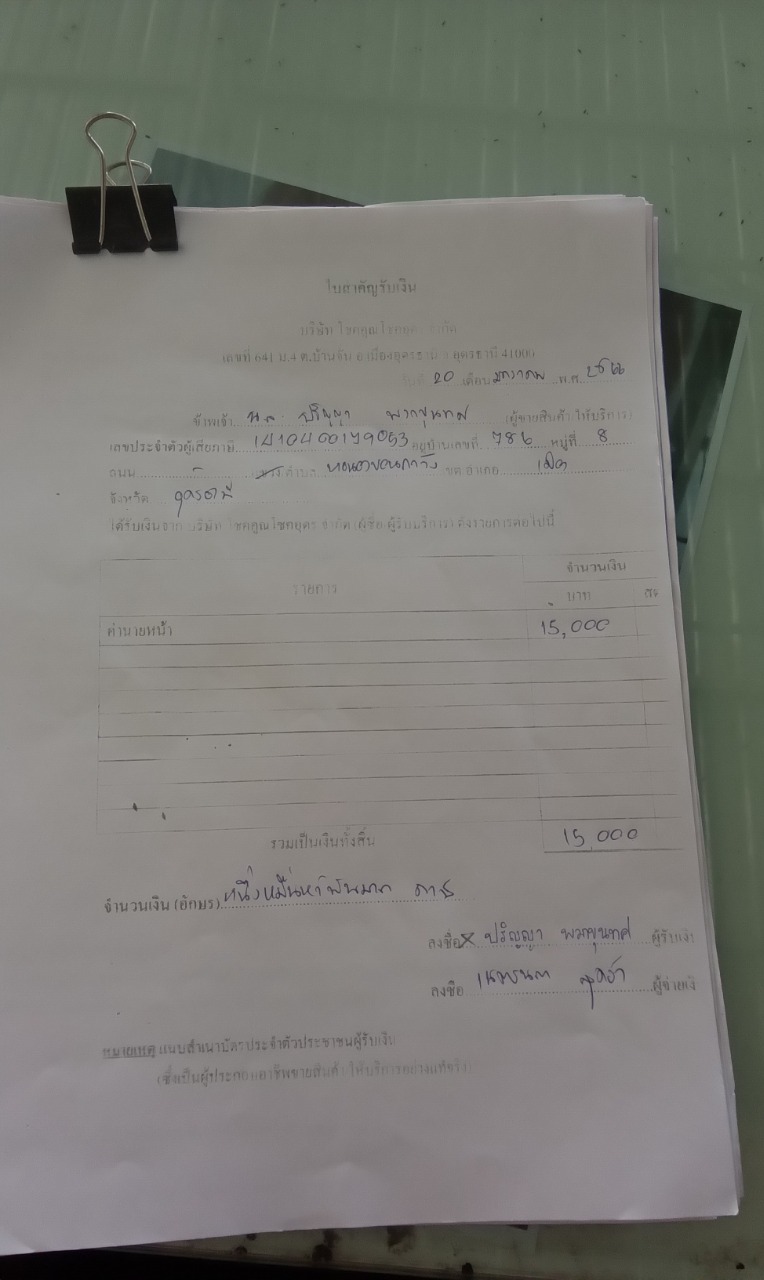 ใบสำคัญรับเงิน
บริษัท โชคคูณโชคยุดร จำกัด
เลขที่ 641 ม.4 ต.บ้านจั่น อ.เมืองอุดรธานี จ.อุดรธานี 41000
วันที่ 20 เดือน มกราคม พ.ศ. 2566
ข้าพเจ้า น.ส. ปริญญา (ผู้ขายสินค้า/ให้บริการ)
เลขประจำตัวผู้เสียภาษี 1410400179053 อยู่บ้านเลขที่ 786 หมู่ที่ 8
ถนน - แขวง/ตำบล เขต/อำเภอ เมือง
จังหวัด อุดรธานี
ได้รับเงินจาก บริษัท โชคคูณโชคยุดร จำกัด (ผู้ซื้อ/ผู้รับบริการ) ดังรายการต่อไปนี้
รายการ จำนวนเงิน
บาท
ค่านายหน้า 15,000
รวมเป็นเงินทั้งสิ้น 15,000
จำนวนเงิน (อักษร) หนึ่งหมื่นห้าพันบาท
ลงชื่อ X ปริญญา ผู้รับเงิน
ลงชื่อ ผู้จ่ายเงิ
หมายเหตุ แนบสำเนาบัตรประจำตัวประชาชนผู้รับเงิน
(ซึ่งเป็นผู้ประกอบอาชีพขายสินค้า/ให้บริการอย่างแท้จริง)